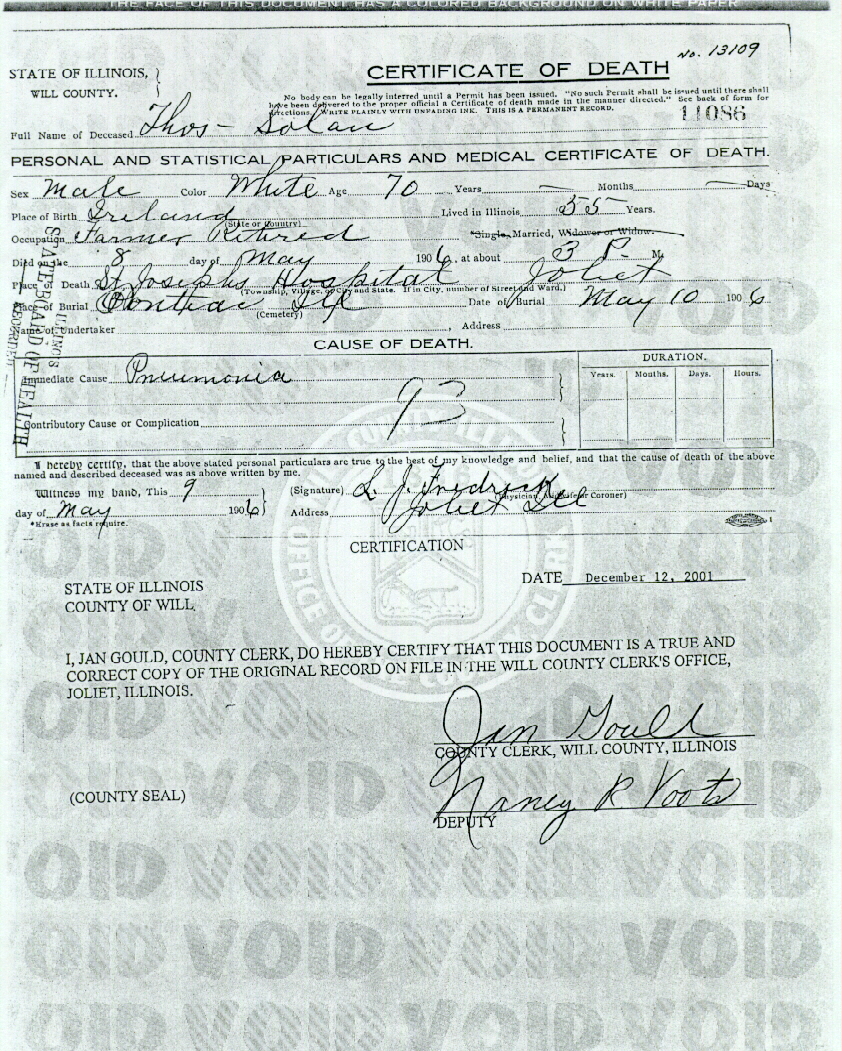 THE FACE OF THIS DOCUMENT HAS A COLORED BACKGROUND ON WHITE PAPER
No. 13109
STATE OF ILLINOIS,
WILL COUNTY.
CERTIFICATE OF DEATH
No body can be legally interred until a Permit has been issued. "No such Permit shall be issued until there shall
have been delivered to the proper official a Certificate of death made in the manner directed." See back of form for
directions. WRITE PLAINLY WITH UNFADING INK. THIS IS A PERMANENT RECORD.
11086
Full Name of Deceased Thos- Solan
PERSONAL AND STATISTICAL PARTICULARS AND MEDICAL CERTIFICATE OF DEATH.
Sex Male Color White Age 70 Years — Months — Days
Place of Birth Ireland Lived in Illinois 55 Years.
(State or Country)
Occupation Farmer Retired *Single, Married, Widower or Widow.
Died on the 8 day of May 1906, at about 3 P. M.
Place of Death St Josephs Hospital Joliet
(Township, Village, or City and State. If in City, number of Street and Ward.)
Place of Burial Pontiac Ill Date of Burial May 10 1906
(Cemetery)
Name of Undertaker , Address
STATE BOARD OF HEALTH
ILLINOIS
RECORDED
CAUSE OF DEATH.
DURATION.
Years. Months. Days. Hours.
Immediate Cause Pneumonia
93
Contributory Cause or Complication
I hereby certify, that the above stated personal particulars are true to the best of my knowledge and belief, and that the cause of death of the above
named and described deceased was as above written by me.
Witness my hand, This 9 (Signature) L. J. Fredrick
(Physician, Midwife or Coroner)
day of May 1906 Address Joliet Ill
*Erase as facts require.
CERTIFICATION
STATE OF ILLINOIS
COUNTY OF WILL
DATE December 12, 2001
I, JAN GOULD, COUNTY CLERK, DO HEREBY CERTIFY THAT THIS DOCUMENT IS A TRUE AND
CORRECT COPY OF THE ORIGINAL RECORD ON FILE IN THE WILL COUNTY CLERK'S OFFICE,
JOLIET, ILLINOIS.
Jan Gould
COUNTY CLERK, WILL COUNTY, ILLINOIS
(COUNTY SEAL)
Nancy R Voots
DEPUTY
OID VOID VOID VOID VOID